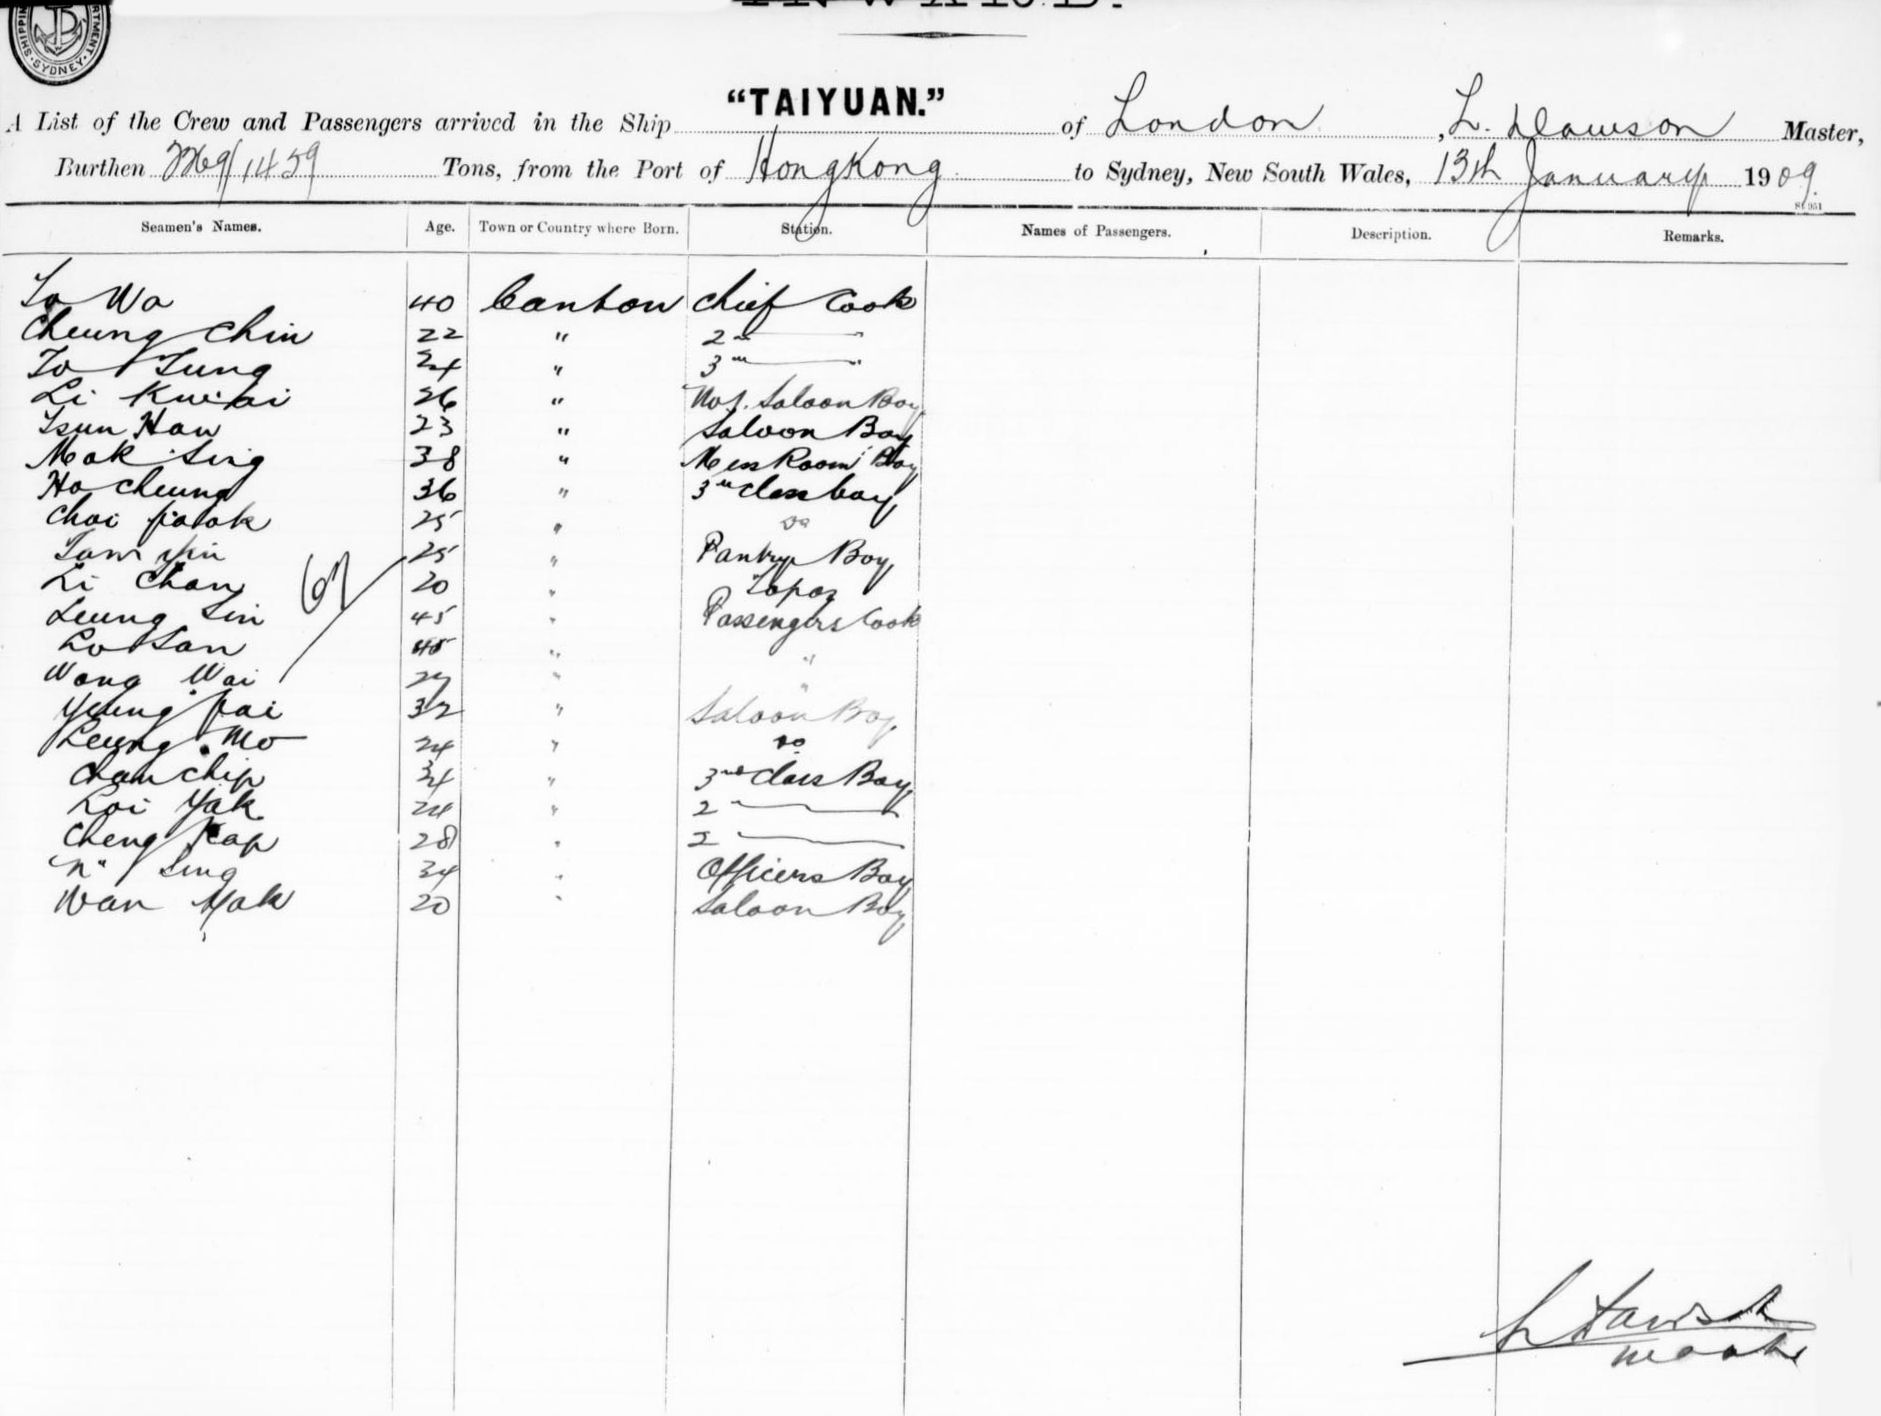 INWARD.
SHIPPING DEPARTMENT SYDNEY
"TAIYUAN."
A List of the Crew and Passengers arrived in the Ship of London, L. Dawson Master,
Burthen 2269/1459 Tons, from the Port of HongKong to Sydney, New South Wales, 13th January 1909.
Seamen's Names. Age. Town or Country where Born. Station. Names of Passengers. Description. Remarks.
Wa 40 Canton Chief Cook
Cheung Chin 22 " 2nd "
Lo Sung 24 " 3rd "
Li 26 " No 1. Saloon Boy
Tsun Hau 23 " Saloon Boy
Mok Sing 38 " Mess Room Boy
Ho Cheung 36 " 3rd Class boy
Choi 25 " Do
Tam Yiu 25 " Pantry Boy
Li Chan 20 " Topaz
67
Leung Sin 45 " Passengers Cook
Lo San 45 " "
Wong Wai 27 " "
Yeung Pai 32 " Saloon Boy
Leung Mo 24 " Do
Chan Chip 34 " 3rd Class Boy
Loi Yak 24 " 2
Cheng Kap 28 " 2
"N" Sing 34 " Officers Boy
Wan Mok 20 " Saloon Boy
L Dawson
Master